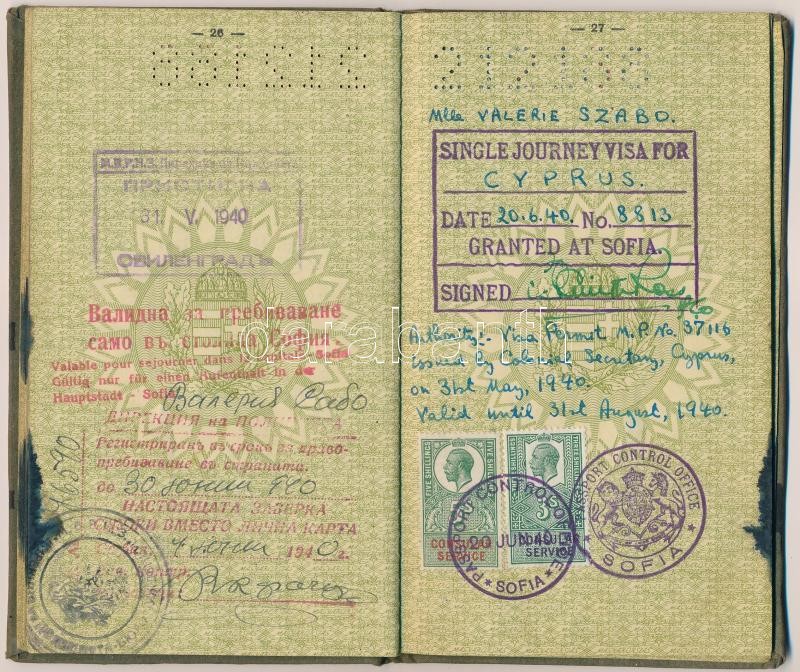 — 26 —
ПРИСТИГНА
31. V. 1940
СВИЛЕНГРАДЪ
Валидна за пребиваване
само въ столица София.
Valable pour séjourner dans la capitale Sofia
Gültig nur für einen Aufenthalt in der
Hauptstadt - Sofia
Валерия Сабо
ДИРЕКЦИЯ на ПОЛИЦИЯТА
Регистриранъ въ срокъ за право-
пребиваване въ страната.
до 30 юний 940
НАСТОЯЩАТА ЗАВЕРКА
СЛУЖИ ВМЕСТО ЛИЧНА КАРТА
София, 4 юний 1940 г.
— 27 —
Mlle VALERIE SZABO.
SINGLE JOURNEY VISA FOR
CYPRUS.
DATE 20.6.40. No. 8813
GRANTED AT SOFIA.
SIGNED
Authority:- Visa Permit M.P. No. 37116
issued by Colonial Secretary, Cyprus,
on 31st May, 1940.
Valid until 31st August, 1940.
FIVE SHILLINGS FIVE SHILLINGS
CONSULAR
SERVICE
THREE
CONSULAR
SERVICE
PASSPORT CONTROL OFFICE
20 JUN 40
* SOFIA *
PASSPORT CONTROL OFFICE
* SOFIA *
darabanth